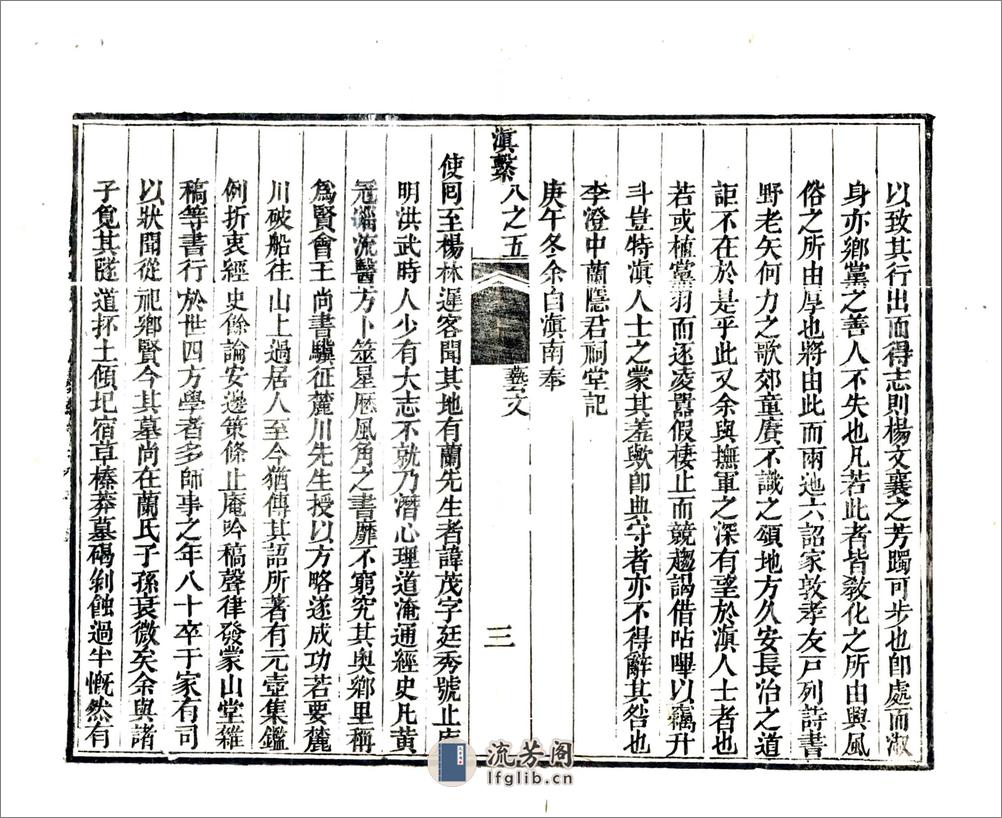 以致其行出而得志則楊文襄之芳躅可步也卽處而淑
身亦鄉黨之善人不失也凡若此者皆敎化之所由興風
俗之所由厚也將由此而兩迤六詔家敦孝友戸列詩書
野老矢何力之歌郊童賡不識之頌地方久安長治之道
詎不在於是乎此又余與撫軍之深有望於滇人士者也
若或植黨羽而逐凌囂假棲止而競趨謁借呫嗶以竊升
斗豈特滇人士之蒙其羞歟卽典守者亦不得辭其咎也
李澄中蘭隱君祠堂記
庚午冬余自滇南奉
滇繫 八之五 藝文 三
使囘至楊林遲客聞其地有蘭先生者諱茂字廷秀號止庵
明洪武時人少有大志不就乃潛心理道淹通經史凡黃
冠淄流醫方卜筮星厯風角之書靡不窮究其奧鄉里稱
爲賢會王尚書驥征麓川先生授以方略遂成功若要麓
川破船往山上過居人至今猶傳其語所著有元壺集鑑
例折衷經史餘論安邊策條止庵吟稿聲律發蒙山堂雜
稿等書行於世四方學者多師事之年八十卒于家有司
以狀聞從祀鄉賢今其墓尚在蘭氏子孫衰微矣余與諸
子覓其隧道抔土傾圮宿草榛莽墓碣剝蝕過半慨然有
流芳阁
lfglib.cn